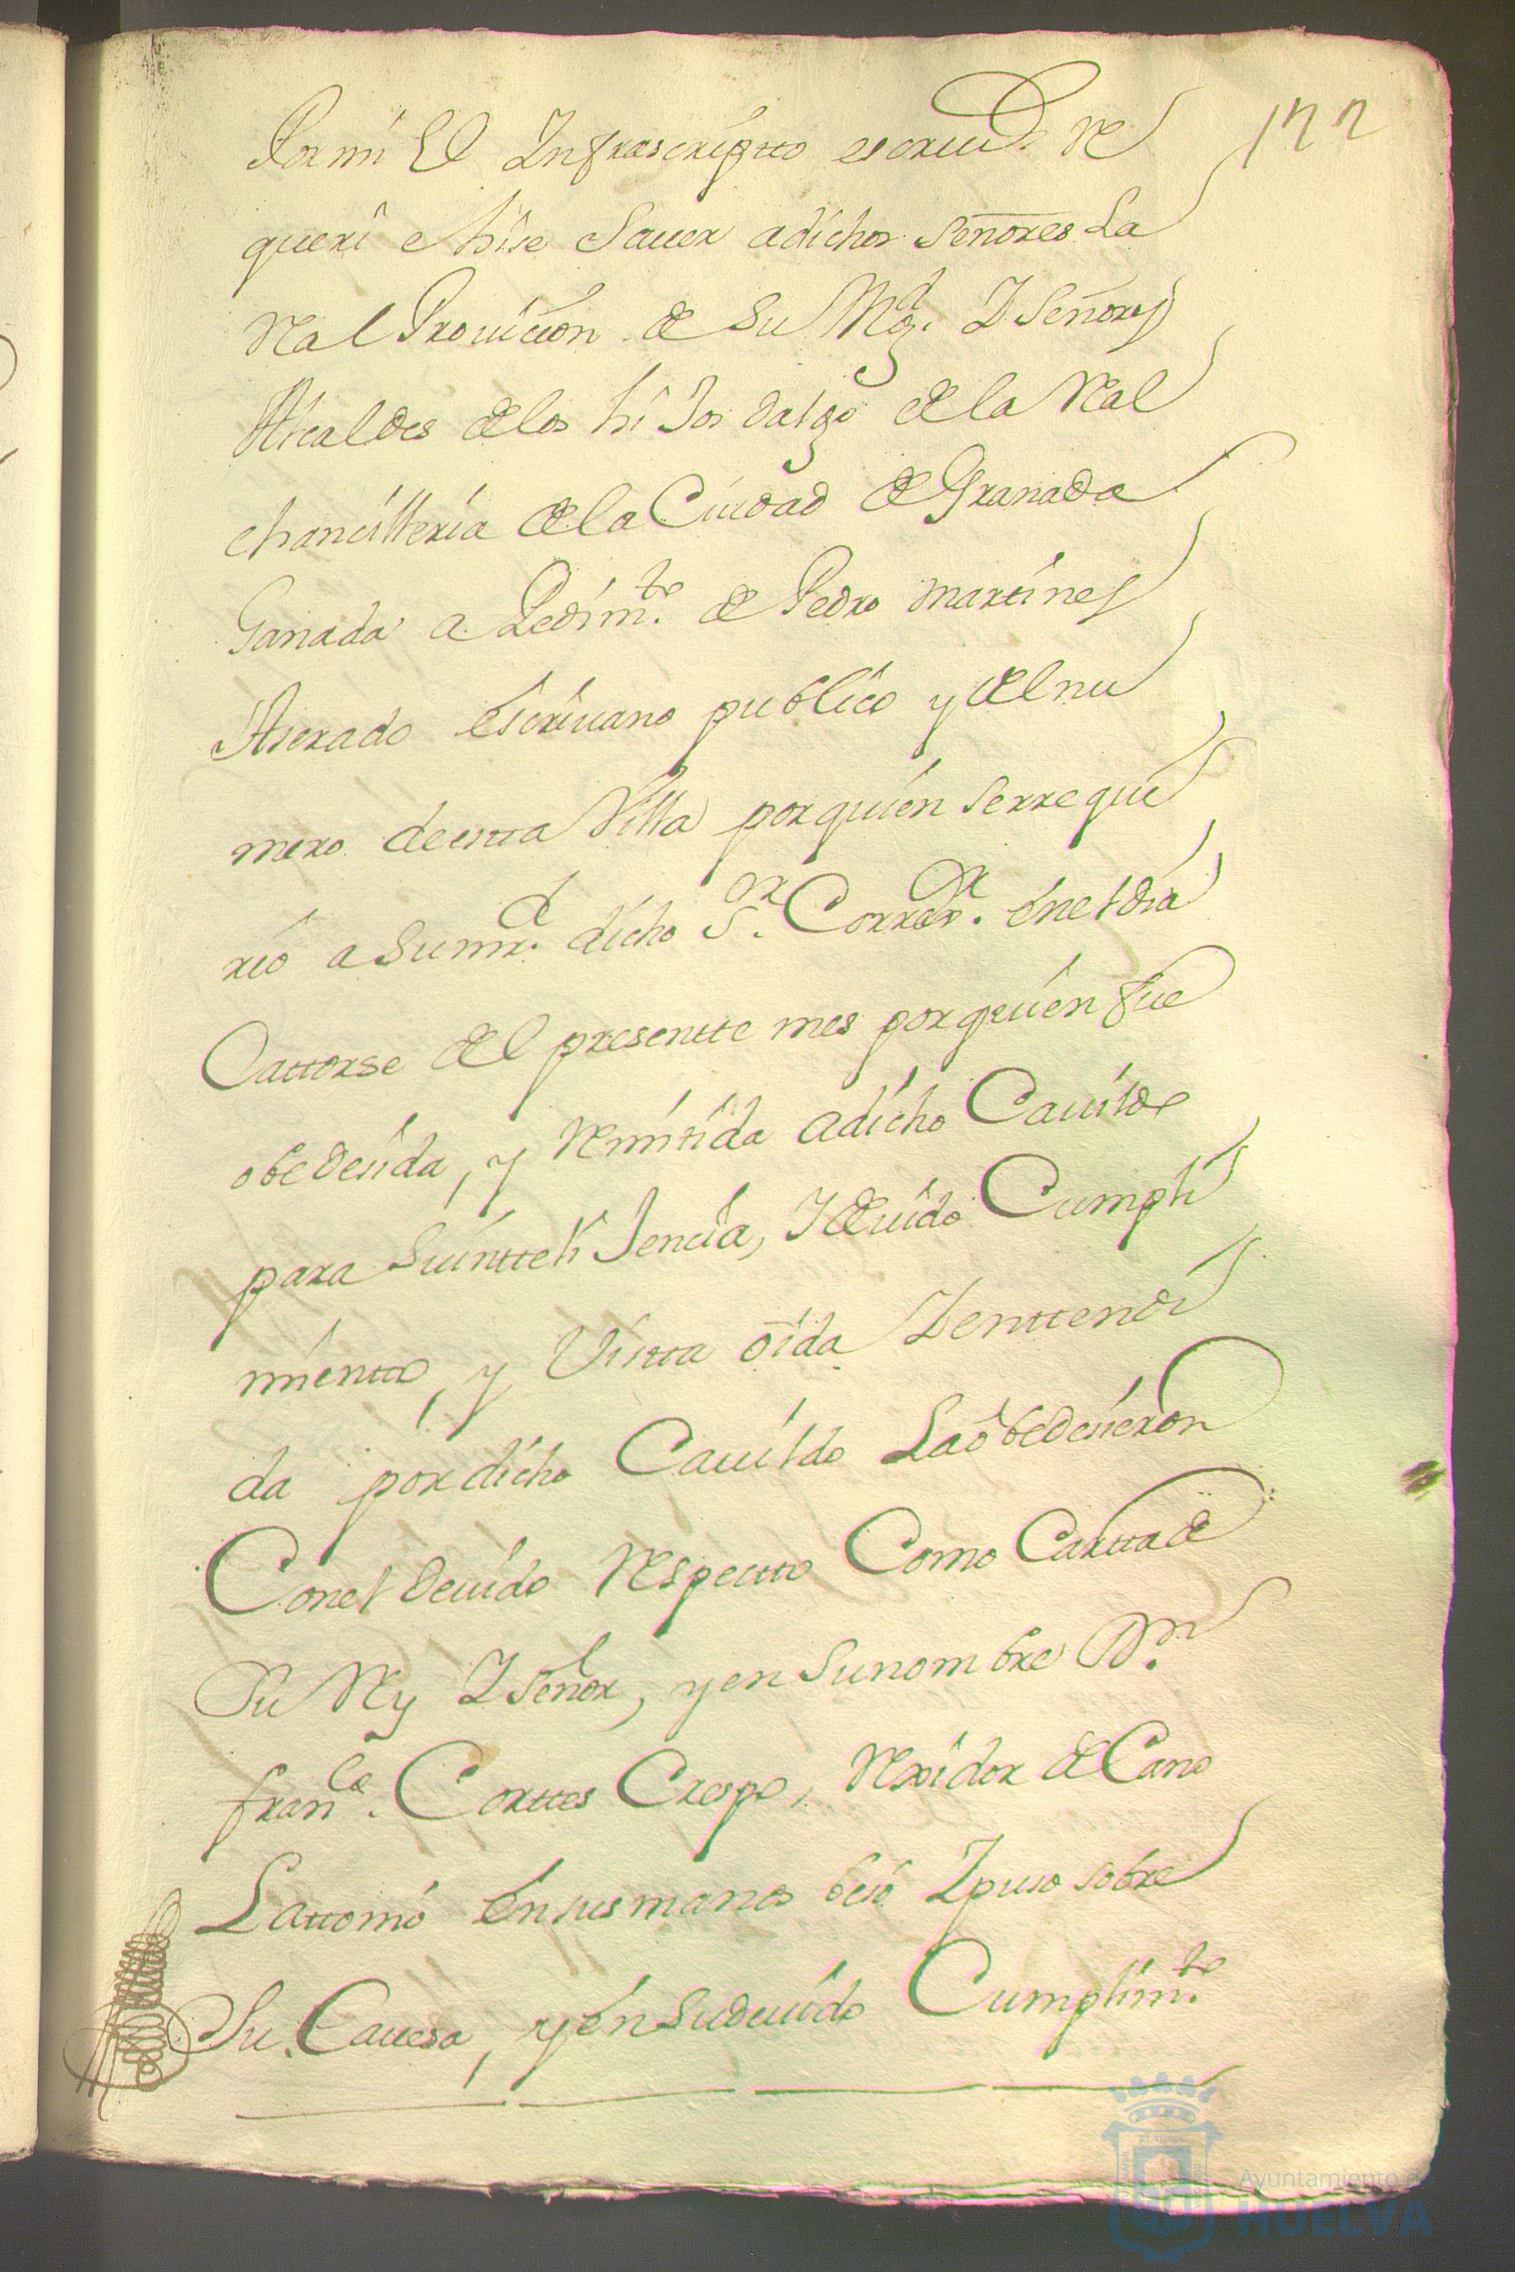 122
Por mi El Infrascriptto escriu.o Re
queri e hise Sauer adichos Señores La
Real Prouicion de Su Mgd. Y Señores
Alcaldes delos hiJos dalgo de la Real
chansilleria de la Ciudad de Granada
Ganada a Pedim.to de Pedro Martines
Aserado escriuano publico y del nu
mero de estta Villa por quien se rreque
rio a su mr.d dicho S.or Corrر.or en el dia
Cattorse del presentte mes por quien fue
obedesida, y Remitida a dicho Cauildo
para su intteliJencia, Y deuido Cumpli
mientto y Vistta oida Y enttendi
da por dicho Cauildo La obedesieron
Con el deuido Respectto Como Cartta de
Su Rey Y Señor, y en su nombre D.n
fran.co Corttes Crespo, Rexidor de Cano
La ttomó en sus manos besó Y puso sobre
Su Cauesa, y en su deuido Cumplim.to
Ayuntamiento de
HUELVA